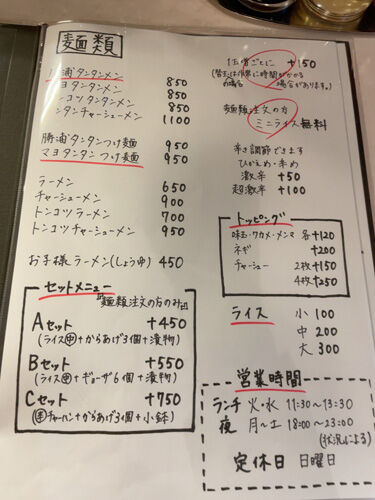 麺類
浦タンタンメン 850
ヨタンタンメン 850
ンコツタンタンメン 850
ンタンチャーシューメン 1100
勝浦タンタンつけ麺 950
マヨタンタンつけ麺 950
ラーメン 650
チャーシューメン 900
トンコツラーメン 700
トンコツチャーシューメン 950
お子様ラーメン(しょうゆ) 450
セットメニュー
麺類注文の方のみ
Aセット +450
(ライス中+からあげ3個+漬物)
Bセット +550
(ライス中+ギョーザ6個+漬物)
Cセット +750
(半チャーハン+からあげ3個+小鉢)
倍増ごとに +150
(替玉は作業に時間がかかる
場合があります。)
麺類注文の方
ミニライス無料
辛さ調節できます
ひかえめ・辛め
激辛 +50
超激辛 +100
トッピング
味玉・ワカメ・メンマ 各+120
ネギ +200
チャーシュー 2枚+150
4枚+250
ライス 小 100
中 200
大 300
営業時間
ランチ 火・水 11:30〜13:30
夜 月〜土 18:00〜23:00
(状況による)
定休日 日曜日